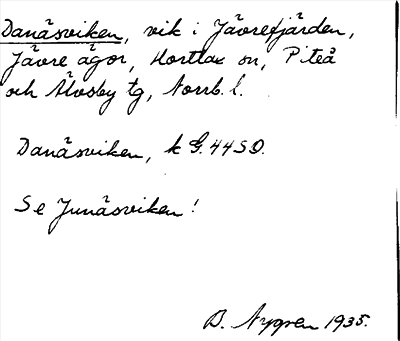 Danäsviken, vik i Jävrefjärden,
Jävre ägor, Hortlax sn, Piteå
och Älvsby tg, Norrb. l.
Danäsviken, k G.44SO.
Se Junäsviken!
B. Nygren 1935.